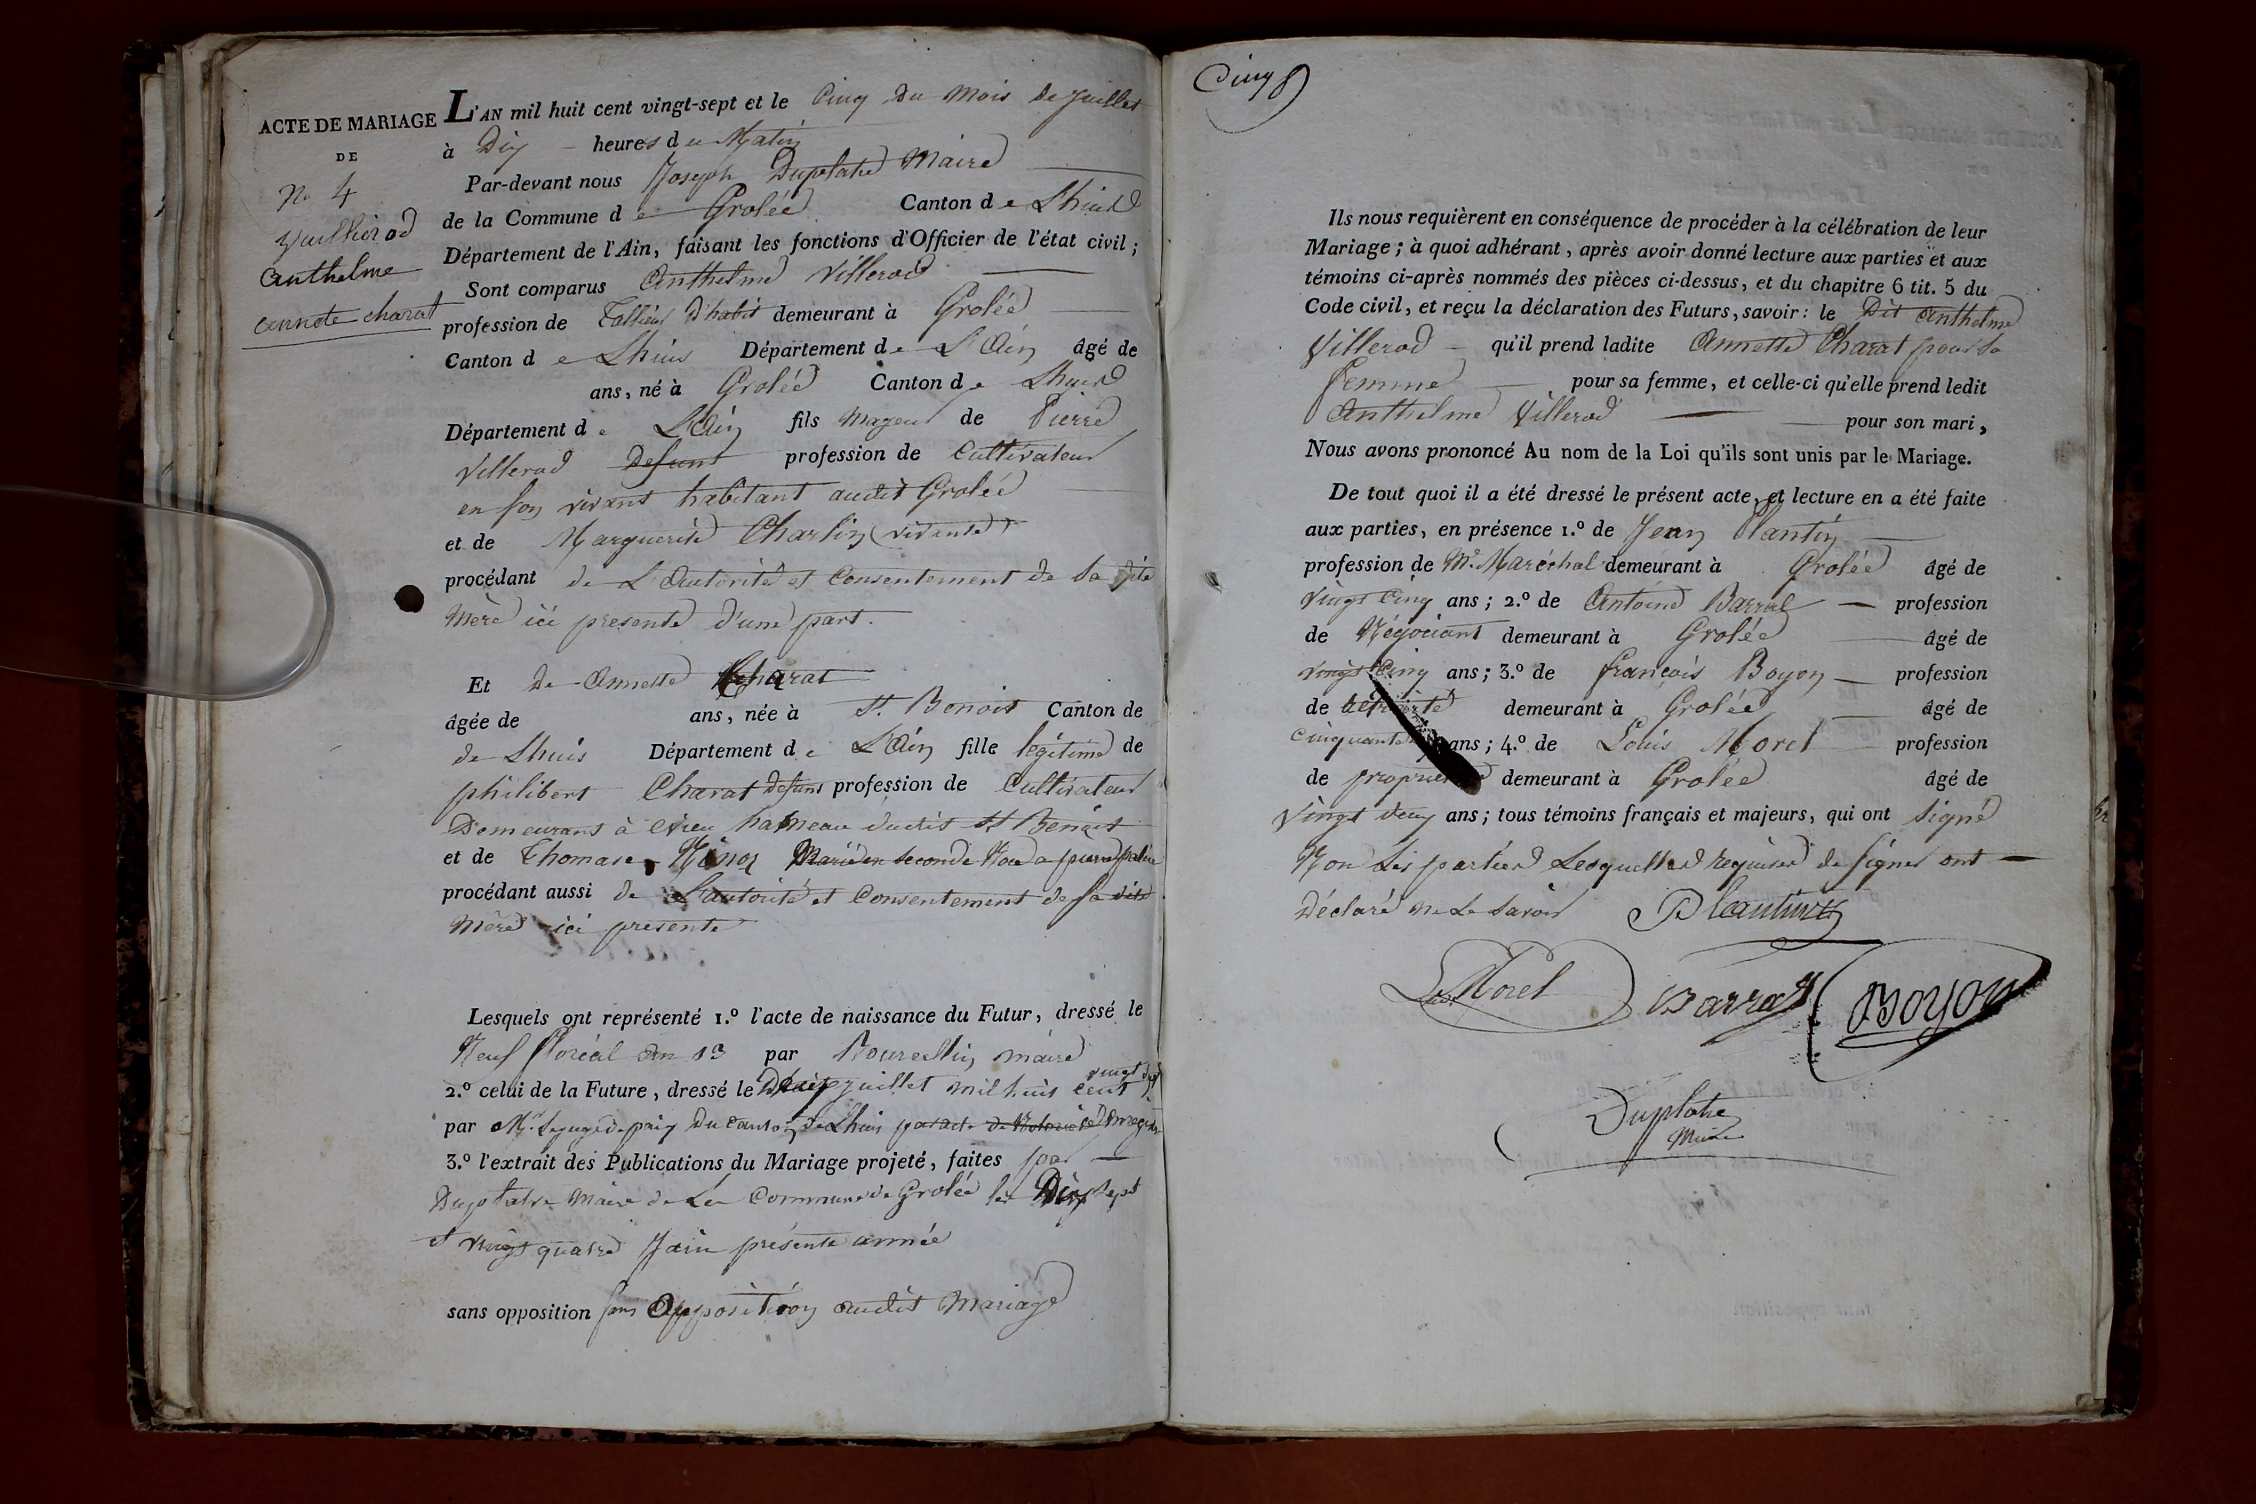 ACTE DE MARIAGE
DE
No 4
Vuillierod
anthelme
annete charat
L'AN mil huit cent vingt-sept et le Cinq du Mois de Juillet
à Dix heures du Matin
Par-devant nous Joseph Duplatre Maire
de la Commune de Grolée Canton de Lhuis
Département de l'Ain, faisant les fonctions d'Officier de l'état civil;
Sont comparus Anthelme Villerod
profession de Tallieur D'habit demeurant à Grolée
Canton de Lhuis Département de L'Ain âgé de
ans, né à Grolée Canton de Lhuis
Département de L'Ain fils Mageur de Pierre
Villerod Defunt profession de Cultivateur
en son vivant habitant audit Grolée
et de Marguerite Charlin (vivante)
procédant de L'Autorité et Consentement de Sa dite
Mère ici presente d'une part.
Et de Annette Charat
âgée de ans, née à St. Benoit Canton de
de Lhuis Département de L'Ain fille légitime de
philibert Charat defunt profession de Cultivateur
Demeurant à hameau dudit St Benoit
et de Thomase Marié en seconde Noce a pierre
procédant aussi de L'autorité et Consentement de Sa dite
Mère ici presente
Lesquels ont représenté 1.º l'acte de naissance du Futur, dressé le
Neuf floréal an 13 par Bourellin maire
2.º celui de la Future, dressé le juillet mil huit cent vingt
par Mr. Le juge de paix du canton de Lhuis
3.º l'extrait des Publications du Mariage projeté, faites par
Duplatre Maire de La Commune de Grolée les Dix sept
et vingt quatre Juin présente année
sans opposition sans Opposition audit Mariage
Cinq
Ils nous requièrent en conséquence de procéder à la célébration de leur
Mariage; à quoi adhérant, après avoir donné lecture aux parties et aux
témoins ci-après nommés des pièces ci-dessus, et du chapitre 6 tit. 5 du
Code civil, et reçu la déclaration des Futurs, savoir: le Dit Anthelme
Villerod qu'il prend ladite Annette Charat pour Sa
Femme pour sa femme, et celle-ci qu'elle prend ledit
Anthelme Villerod pour son mari,
Nous avons prononcé Au nom de la Loi qu'ils sont unis par le Mariage.
De tout quoi il a été dressé le présent acte, et lecture en a été faite
aux parties, en présence 1.º de Jean Plantin
profession de Me. Maréchal demeurant à Grolée âgé de
Vingt Cinq ans; 2.º de Antoine Barral profession
de Négociant demeurant à Grolée âgé de
vingt Cinq ans; 3.º de françois Boyon profession
de demeurant à Grolée âgé de
Cinquante ans; 4.º de Louis Morel profession
de demeurant à Grolée âgé de
Vingt deux ans; tous témoins français et majeurs, qui ont Signé
Non Les parties Lesquelles requises de Signer ont
Déclaré ne Le Savoir Plantin
Ls Morel Barral Boyon
Duplatre
Maire